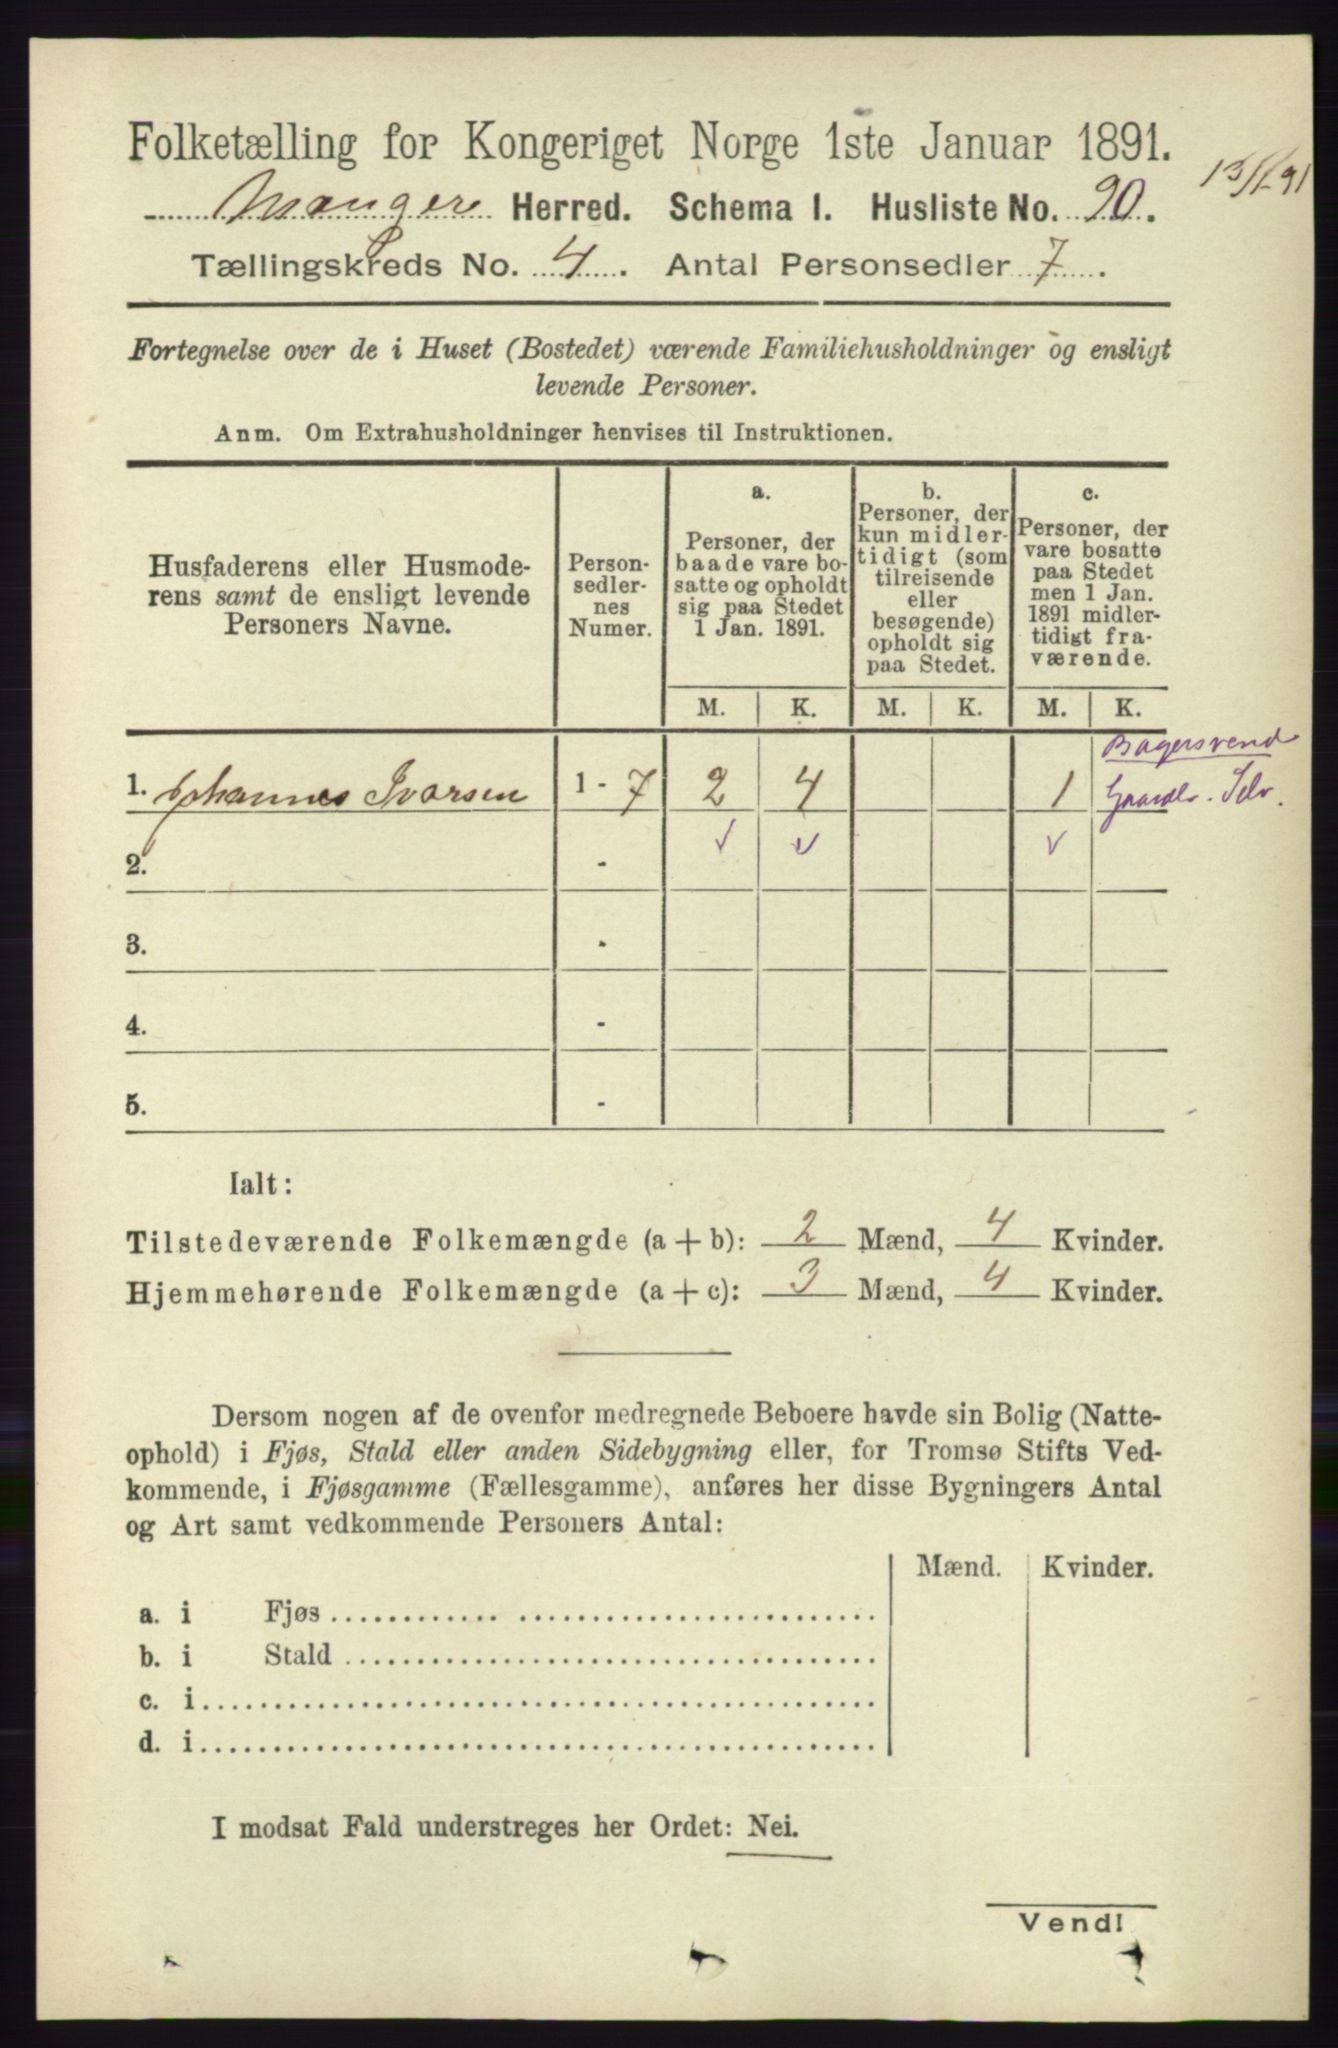 Folketælling for Kongeriget Norge 1ste Januar 1891.
Manger Herred. Schema I. Husliste No. 90.
Tællingskreds No. 4. Antal Personsedler 7.
Fortegnelse over de i Huset (Bostedet) værende Familiehusholdninger og ensligt
levende Personer.
Anm. Om Extrahusholdninger henvises til Instruktionen.
Husfaderens eller Husmode-
rens samt de ensligt levende
Personers Navne.
Person-
sedler-
nes
Numer.
a.
Personer, der
baade vare bo-
satte og opholdt
sig paa Stedet
1 Jan. 1891.
b.
Personer, der
kun midler-
tidigt (som
tilreisende
eller
besøgende)
opholdt sig
paa Stedet.
c.
Personer, der
vare bosatte
paa Stedet
men 1 Jan.
1891 midler-
tidigt fra-
værende.
M. K. M. K. M. K.
Bagersvend
1. Johannes Ivarsen 1 - 7 2 4 1 Gaardbr. Selv.
2. -
3. -
4. -
5. -
Ialt:
Tilstedeværende Folkemængde (a + b): 2 Mænd, 4 Kvinder.
Hjemmehørende Folkemængde (a + c): 3 Mænd, 4 Kvinder.
Dersom nogen af de ovenfor medregnede Beboere havde sin Bolig (Natte-
ophold) i Fjøs, Stald eller anden Sidebygning eller, for Tromsø Stifts Ved-
kommende, i Fjøsgamme (Fællesgamme), anføres her disse Bygningers Antal
og Art samt vedkommende Personers Antal:
Mænd. Kvinder.
a. i Fjøs
b. i Stald
c. i
d. i
I modsat Fald understreges her Ordet: Nei.
Vend!